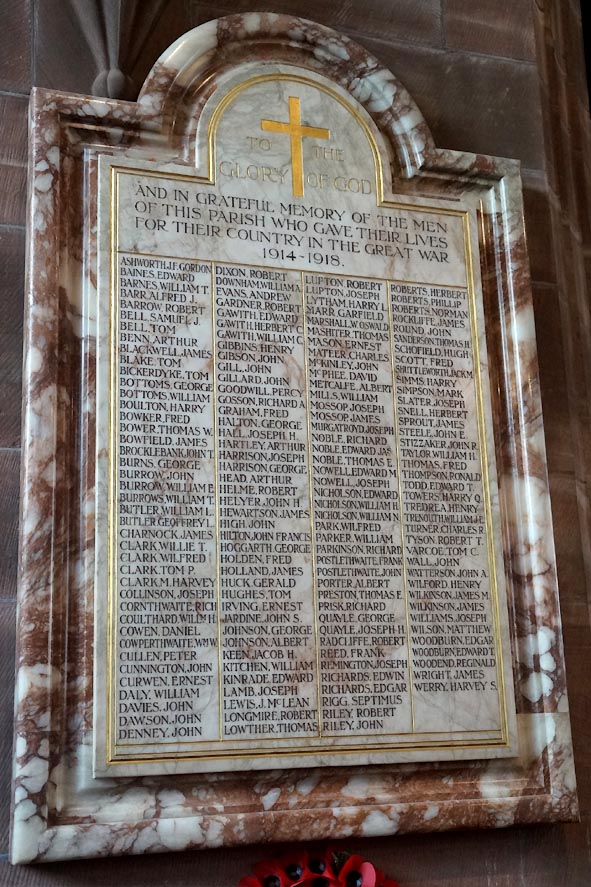 TO THE
GLORY OF GOD
AND IN GRATEFUL MEMORY OF THE MEN
OF THIS PARISH WHO GAVE THEIR LIVES
FOR THEIR COUNTRY IN THE GREAT WAR
1914-1918.
ASHWORTH.J.F.GORDON
BAINES, EDWARD
BARNES, WILLIAM T.
BARR, ALFRED J.
BARROW, ROBERT
BELL, SAMUEL J.
BELL, TOM
BENN, ARTHUR
BLACKWELL, JAMES
BLAKE, TOM
BICKERDYKE, TOM
BOTTOMS, GEORGE
BOTTOMS, WILLIAM
BOULTON, HARRY
BOWKER, FRED
BOWER, THOMAS W.
BOWFIELD, JAMES
BROCKLEBANK, JOHN T.
BURNS, GEORGE
BURROW, JOHN
BURROW, WILLIAM E.
BURROWS, WILLIAM T.
BUTLER, WILLIAM L.
BUTLER, GEOFFREY L.
CHARNOCK, JAMES
CLARK, WILLIE T.
CLARK, WILFRED
CLARK, TOM P.
CLARK, M. HARVEY
COLLINSON, JOSEPH
CORNTHWAITE, RICH
COULTHARD, WILLM H.
COWEN, DANIEL
COWPERTHWAITE, WM.
CULLEN, PETER
CUNNINGTON, JOHN
CURWEN, ERNEST
DALY, WILLIAM
DAVIES, JOHN
DAWSON, JOHN
DENNEY, JOHN
DIXON, ROBERT
DOWNHAM, WILLIAM A.
EVANS, ANDREW
GARDNER, ROBERT
GAWITH, EDWARD
GAWITH, HERBERT C.
GAWITH, WILLIAM
GIBBINS, HENRY
GIBSON, JOHN
GILL, JOHN
GILLARD, JOHN
GOODWILL, PERCY
GOSSON, RICHARD A.
GRAHAM, FRED
HALTON, GEORGE
HALL, JOSEPH H.
HARTLEY, ARTHUR
HARRISON, JOSEPH
HARRISON, GEORGE
HEAD, ARTHUR
HELME, ROBERT
HELYER, JOHN H.
HEWARTSON, JAMES
HIGH, JOHN
HILTON, JOHN FRANCIS
HOGGARTH, GEORGE
HOLDEN, FRED
HOLLAND, JAMES
HUCK, GERALD
HUGHES, TOM
IRVING, ERNEST
JARDINE, JOHN S.
JOHNSON, GEORGE
JOHNSON, ALBERT
KEEN, JACOB H.
KITCHEN, WILLIAM
KINRADE, EDWARD
LAMB, JOSEPH
LEWIS, J. McLEAN
LONGMIRE, ROBERT
LOWTHER, THOMAS
LUPTON, ROBERT
LUPTON, JOSEPH
LYTHAM, HARRY L.
MARR, GARFIELD
MARSHALL, W. OSWALD
MASHITER, THOMAS
MASON, ERNEST
MATEER, CHARLES
McKINLEY, JOHN
McPHEE, DAVID
METCALFE, ALBERT
MILLS, WILLIAM
MOSSOP, JOSEPH
MOSSOP, JAMES
MURGATROYD, JOSEPH
NOBLE, RICHARD
NOBLE, EDWARD JAS
NOBLE, THOMAS E.
NOWELL, EDWARD M.
NOWELL, JOSEPH
NICHOLSON, EDWARD
NICHOLSON, WILLIAM H.
NICHOLSON, WILLIAM N.
PARK, WILFRED
PARKER, WILLIAM
PARKINSON, RICHARD
POSTLETHWAITE, FRANK
POSTLETHWAITE, JOHN
PORTER, ALBERT
PRESTON, THOMAS E.
PRISK, RICHARD
QUAYLE, GEORGE
QUAYLE, JOSEPH H.
RADCLIFFE, ROBERT
REED, FRANK
REMINGTON, JOSEPH
RICHARDS, EDWIN
RICHARDS, EDGAR
RIGG, SEPTIMUS
RILEY, ROBERT
RILEY, JOHN
ROBERTS, HERBERT
ROBERTS, PHILLIP
ROBERTS, NORMAN
ROCKLIFFE, JAMES
ROUND, JOHN
SANDERSON, THOMAS H.
SCHOFIELD, HUGH
SCOTT, FRED
SHUTTLEWORTH, JACK M.
SIMMS, HARRY
SIMPSON, MARK
SLATER, JOSEPH
SNELL, HERBERT
SPROUT, JAMES
STEELE, JOHN E.
STIZZAKER, JOHN R.
TAYLOR, WILLIAM H.
THOMAS, FRED
THOMPSON, RONALD
TODD, EDWARD T.
TOWERS, HARRY Q.
TREDREA, HENRY
TRENOUTH, WILLIAM J.E.
TURNER, CHARLES R.
TYSON, ROBERT T.
VARCOE, TOM C.
WALL, JOHN
WATTERSON, JOHN A.
WILFORD, HENRY
WILKINSON, JAMES M.
WILKINSON, JAMES
WILLIAMS, JOSEPH
WILSON, MATTHEW
WOODBURN, EDGAR
WOODBURN, EDWARD T.
WOODEND, REGINALD
WRIGHT, JAMES
WERRY, HARVEY S.